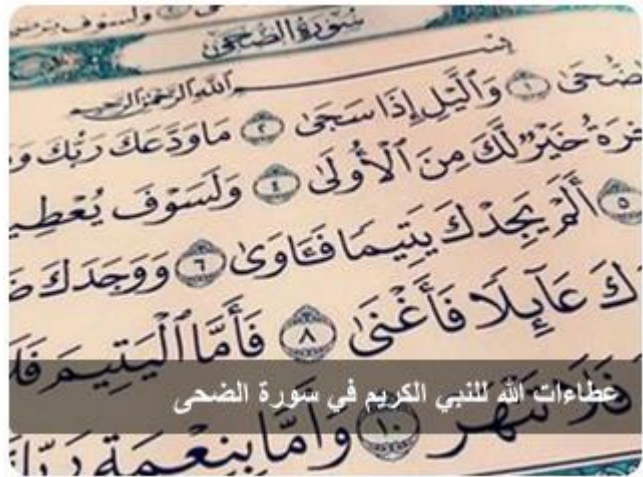 ولسوف
سُورَةُ الضُّحَىٰ
بِسْمِ اللَّهِ الرَّحْمَٰنِ الرَّحِيمِ
ضُّحَىٰ ١ وَٱلَّيْلِ إِذَا سَجَىٰ ٢ مَا وَدَّعَكَ رَبُّكَ وَ
خِرَةُ خَيْرٌ لَّكَ مِنَ ٱلْأُولَىٰ ٤ وَلَسَوْفَ يُعْطِي
٥ أَلَمْ يَجِدْكَ يَتِيمًا فَـَٔاوَىٰ ٦ وَوَجَدَكَ ضَ
كَ عَآئِلًا فَأَغْنَىٰ ٨ فَأَمَّا ٱلْيَتِيمَ فَلَا
عطاءات الله للنبي الكريم في سورة الضحى
فَلَا تَنْهَرْ ١٠ وَأَمَّا بِنِعْمَةِ رَبِّكَ